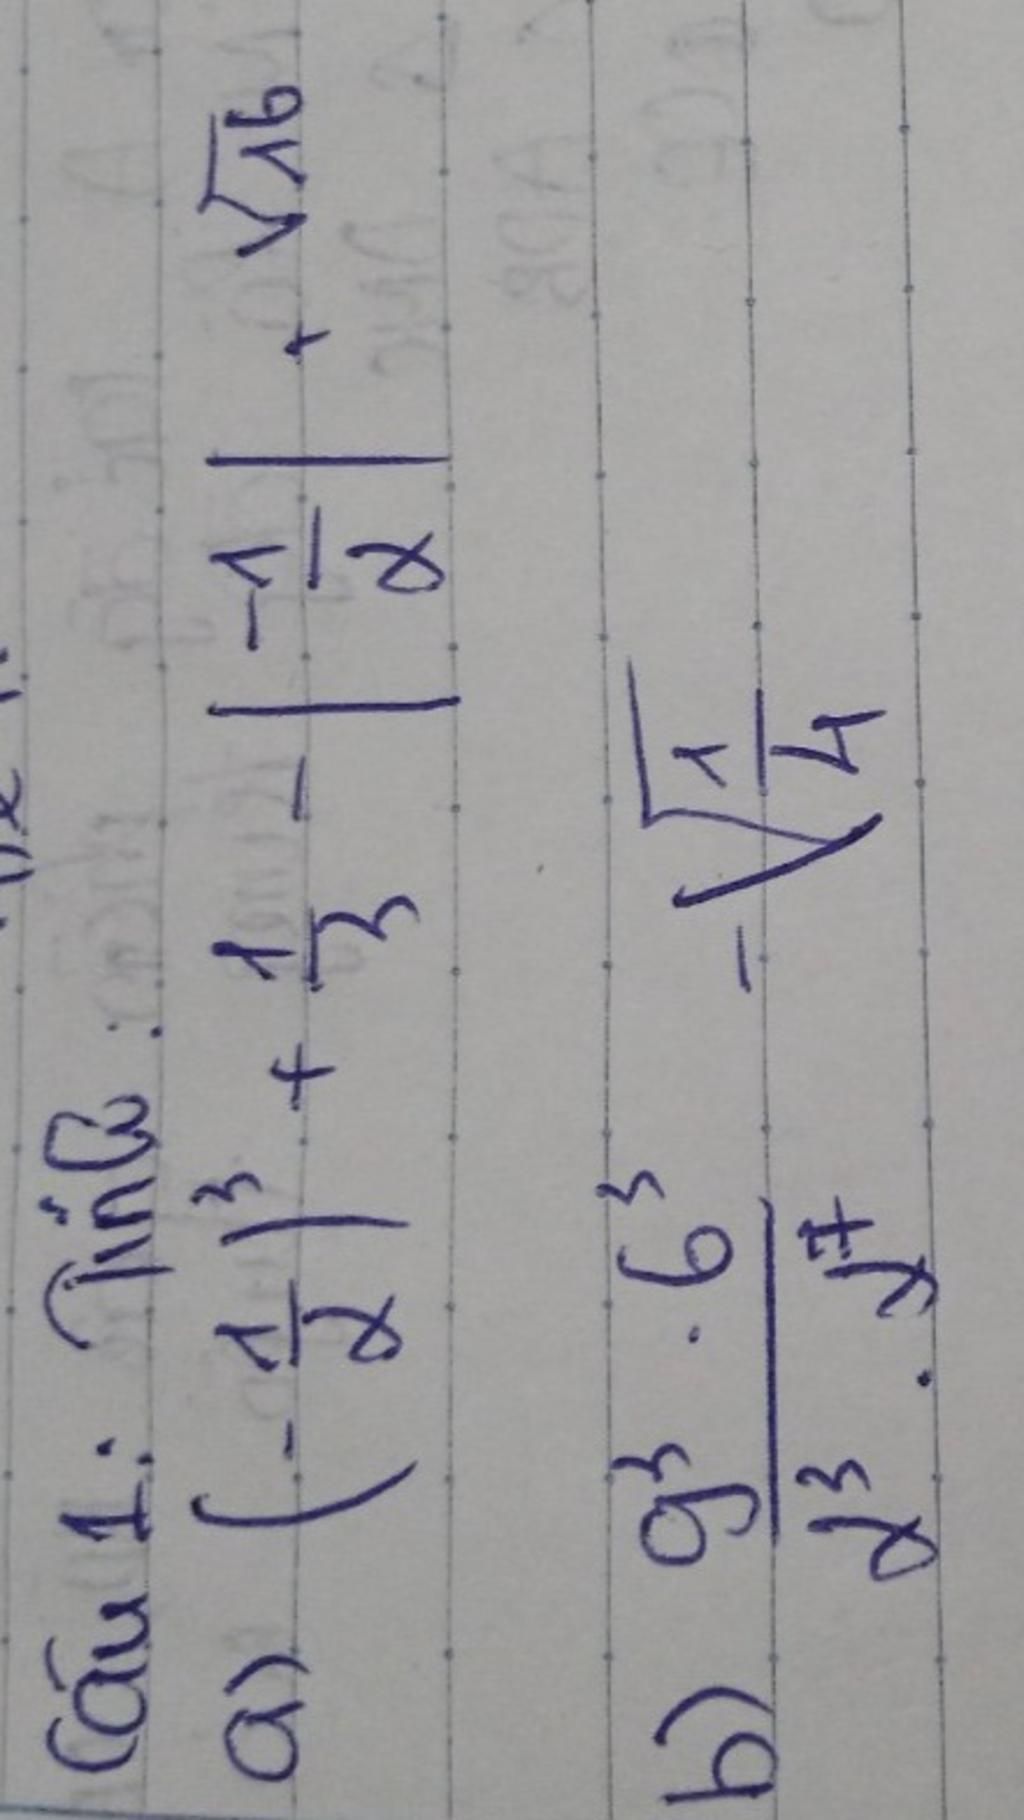 Câu 1: Tính:
a) (-1/2)³ + 1/3 - |-1/2| + √16
b) (9³ . 6³)/(2³ . 3⁷) - √(1/4)